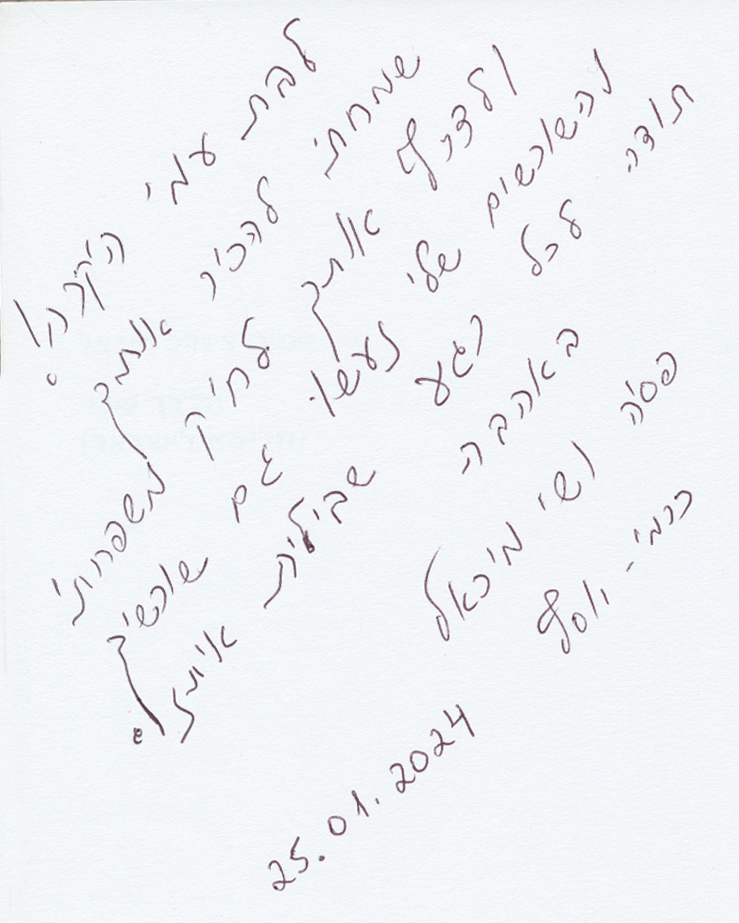 לבת עמי היקרה!
שמחתי להכיר אותך
ולצרף אותך לחיק משפחתי
והשורשים שלי נעשו גם שורשיך!
תודה לכל רגע שבילית
באהבה
פסיה ושי מיכאל
כרמי-יוסף
25.01.2024